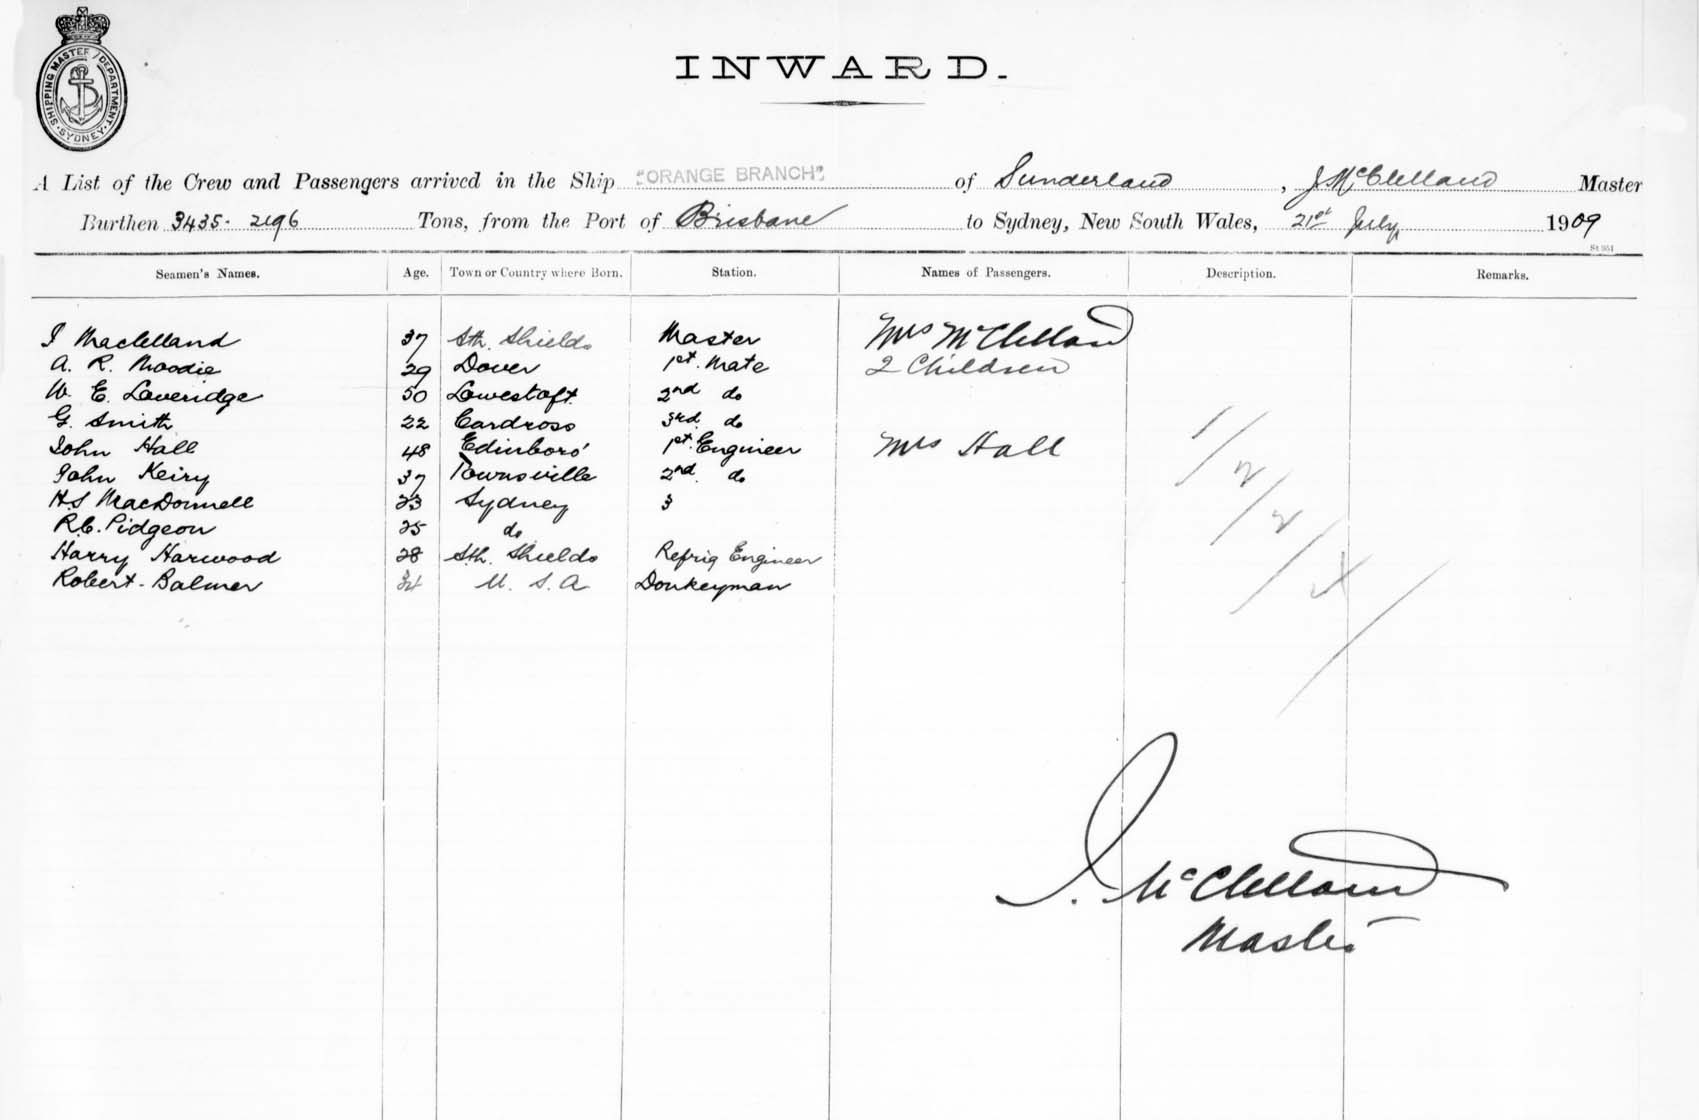 SHIPPING MASTER DEPARTMENT
SYDNEY
INWARD.
A List of the Crew and Passengers arrived in the Ship "ORANGE BRANCH" of Sunderland, J McClelland Master
Burthen 3435 - 2196 Tons, from the Port of Brisbane to Sydney, New South Wales, 21st July 1909
St 951
Seamen's Names. Age. Town or Country where Born. Station. Names of Passengers. Description. Remarks.
J Maclelland 37 Sth. Shields Master Mrs McClelland
A. R. Moodie 29 Dover 1st. Mate 2 Children
W. E. Loveridge 50 Lowestoft 2nd do
G. Smith 22 Cardross 3rd do
John Hall 48 Edinboro' 1st. Engineer Mrs Hall
John Keiry 37 Townsville 2nd do
H.S MacDonnell 23 Sydney 3
R.C. Pidgeon 25 do
Harry Harwood 28 Sth. Shields Refrig Engineer
Robert Balmer 34 U. S. A Donkeyman
1/2/2/
J. McClelland
Master